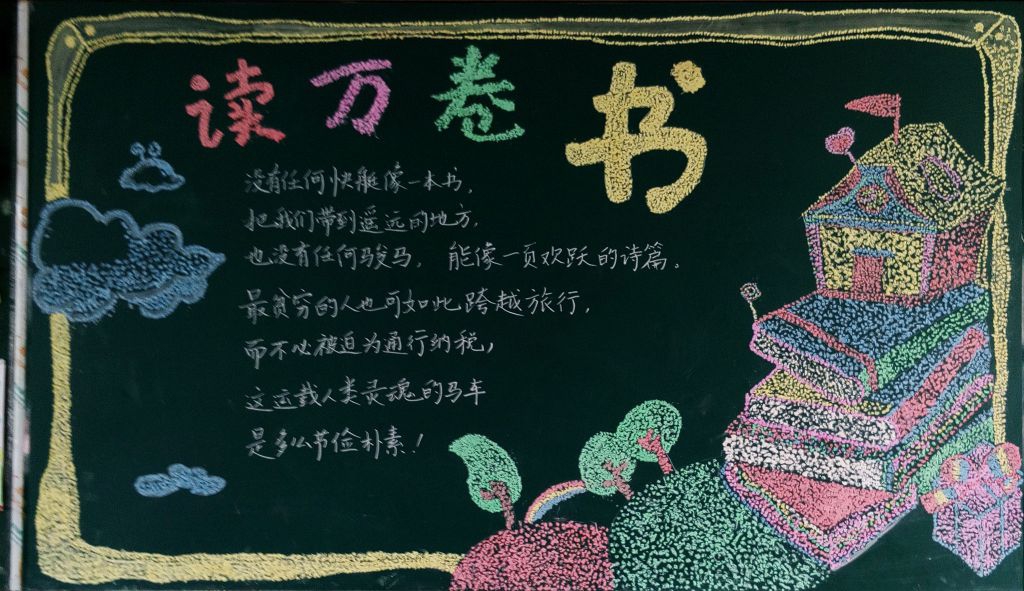 读万卷书
没有任何快艇像一本书，
把我们带到遥远的地方，
也没有任何骏马，能像一页欢跃的诗篇。
最贫穷的人也可如此跨越旅行，
而不必被迫为通行纳税，
这运载人类灵魂的马车
是多么节俭朴素！